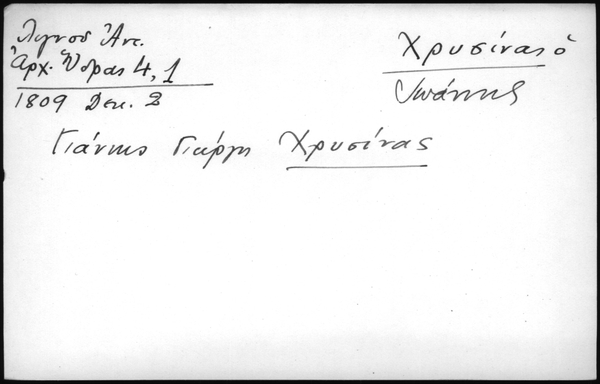 Λιγνοῦ Ἀντ.
Ἀρχ. Ὕδρας 4, 1
1809 Δεκ. 2
Χρυσίνας ὁ
Ἰωάννης
Γιάννης Γιώργη Χρυσίνας